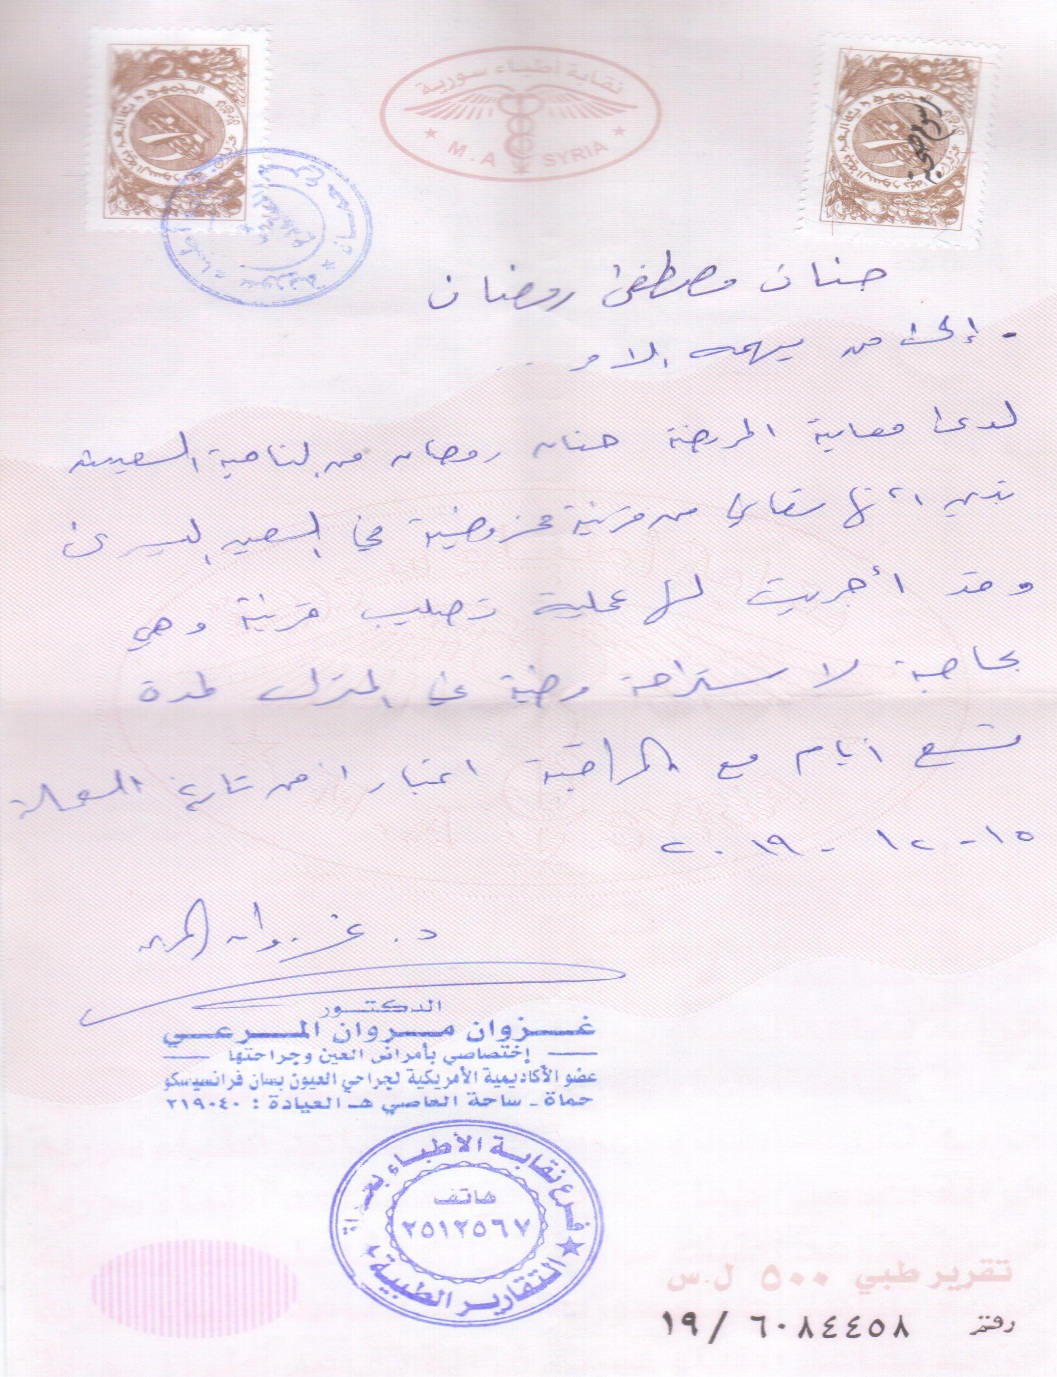 نقابة اطباء سورية
M.A SYRIA
حنان مصطفى رمضان
- إلى من يهمه الامر ..
لدى معاينة المريضة حنان رمضان من الناحية العينية
تبين انها تعاني من قرنية مخروطية في العين اليسرى
وقد أجريت لها عملية تصليب قرنية وهي
بحاجة لاستراحة مرضية في المنزل لمدة
تسع أيام مع المراقبة اعتبارا من تاريخ العملية
١٥ - ١٢ - ٢٠١٩
د. غزوان المرعي
الدكتور
غزوان مروان المرعي
إختصاصي بأمراض العين وجراحتها
عضو الأكاديمية الأمريكية لجراحي العيون بسان فرانسيسكو
حماة - ساحة العاصي هـ العيادة : ٢١٩٠٤٠
فرع نقابة الأطباء بحماة
هاتف
٢٥١٢٥٦٧
التقارير الطبية
تقرير طبي ٥٠٠ ل.س
رقم ٦٠٨٤٤٥٨ / ١٩